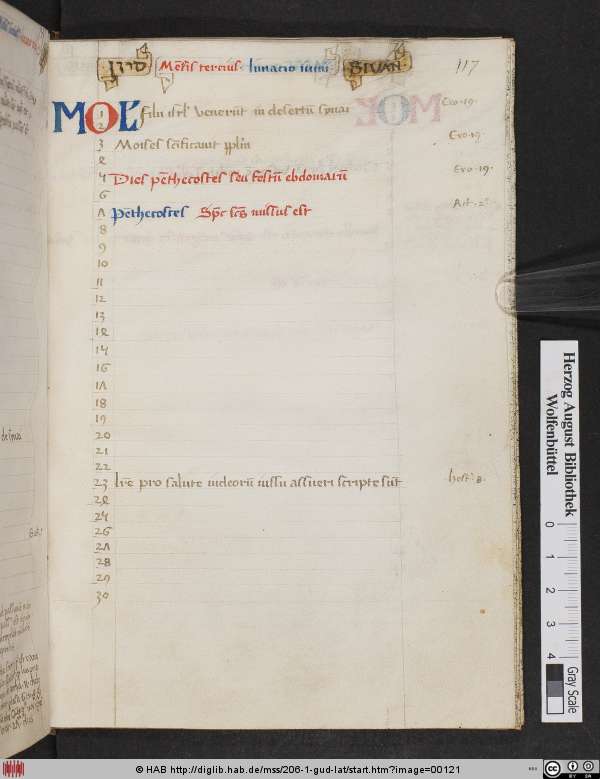 סיון Mēsis tercius · lunacio iunii SIVAN 117
MOL
1 filii isrl̄ venerūt in desertū synai Exo · 19 ·
2
3 Moises sc̄ificavit pplm̄ Exo · 19 ·
4
5 Dies pēthecostes seu festū ebdomarū Exo · 19 ·
6
7 Pēthecostes Sp̄c sc̄s missus est Act · 2 ·
8
9
10
11
12
13
14
15
16
17
18
19
20
21
22
23 lr̄e pro salute iudeorū iussu assueri scripte sūt hest · 8 ·
24
25
26
27
28
29
30
Herzog August Bibliothek
Wolfenbüttel
0 1 2 3 4
Gray Scale
© HAB http://diglib.hab.de/mss/206-1-gud-lat/start.htm?image=00121